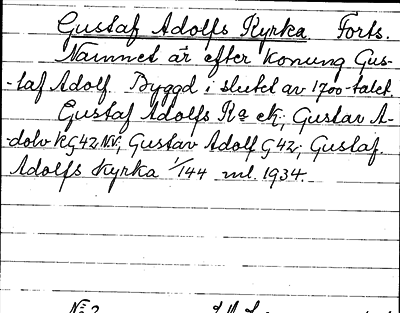 Gustaf Adolfs Kyrka. Forts.
Namnet är efter Konung Gus-
-taf Adolf. Byggd i slutet av 1700-talet.
Gustaf Adolfs Ka ek; Gustav A-
-dolv k G42 NV; Gustav Adolf G42; Gustaf
Adolfs Kyrka 1/144 ml. 1934.
No 2